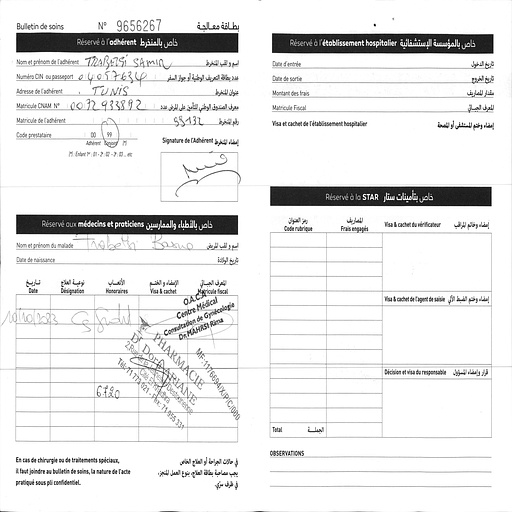 Bulletin de soins N° 9656267 بطاقة معالجة
Réservé à l'adhérent خاص بالمنخرط
Nom et prénom de l'adhérent TRABELSI SAMIR اسم و لقب المنخرط
Numéro CIN ou passeport 04057634 عدد بطاقة التعريف الوطنية أو جواز السفر
Adresse de l'adhérent TUNIS عنوان المنخرط
Matricule CNAM N° 0032933892 معرف الصندوق الوطني للتأمين على المرض عدد
Matricule de l'adhérent 55132 رقم المنخرط
Code prestataire 00 99 Signature de l'Adhérent إمضاء المنخرط
Adhérent Conjoint
Enfant 1er : 01 - 2 : 02 - 3 : 03 ... etc
Réservé aux médecins et praticiens خاص بالأطباء والممارسين
Nom et prénom du malade اسم و لقب المريض
Date de naissance تاريخ الولادة
تاريخ نوعية العلاج الأتعاب الإمضاء و الختم المعرف الجبائي
Date Désignation Honoraires Visa & cachet Matricule fiscal
10/10/2023
O.A.C.A
Centre Médical
Consultation de Gynécologie
Dr. MAHRSI Rima
PHARMACIE
Tél: 71 771 021 - Fax: 71 955 331
6720
En cas de chirurgie ou de traitements spéciaux,
il faut joindre au bulletin de soins, la nature de l'acte
pratiqué sous pli confidentiel.
في حالات الجراحة أو العلاج الخاص
يجب مصاحبة بطاقة العلاج، بنوع العمل المنجز،
في ظرف سري.
Réservé à l'établissement hospitalier خاص بالمؤسسة الإستشفائية
Date d'entrée تاريخ الدخول
Date de sortie تاريخ الخروج
Montant des frais مقدار المصاريف
Matricule Fiscal المعرف الجبائي
Visa et cachet de l'établissement hospitalier إمضاء وختم المستشفى أو المصحة
Réservé à la STAR خاص بتأمينات ستار
رمز العنوان المصاريف
Code rubrique Frais engagés Visa & cachet du vérificateur إمضاء وخاتم المراقب
Visa & cachet de l'agent de saisie إمضاء وختم الضبط الآلي
Décision et visa du responsable قرار وإمضاء المسؤول
Total الجملة
OBSERVATIONS